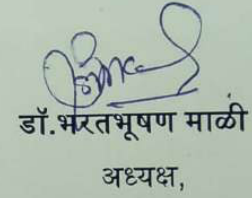 डॉ.भरतभूषण माळी
अध्यक्ष,